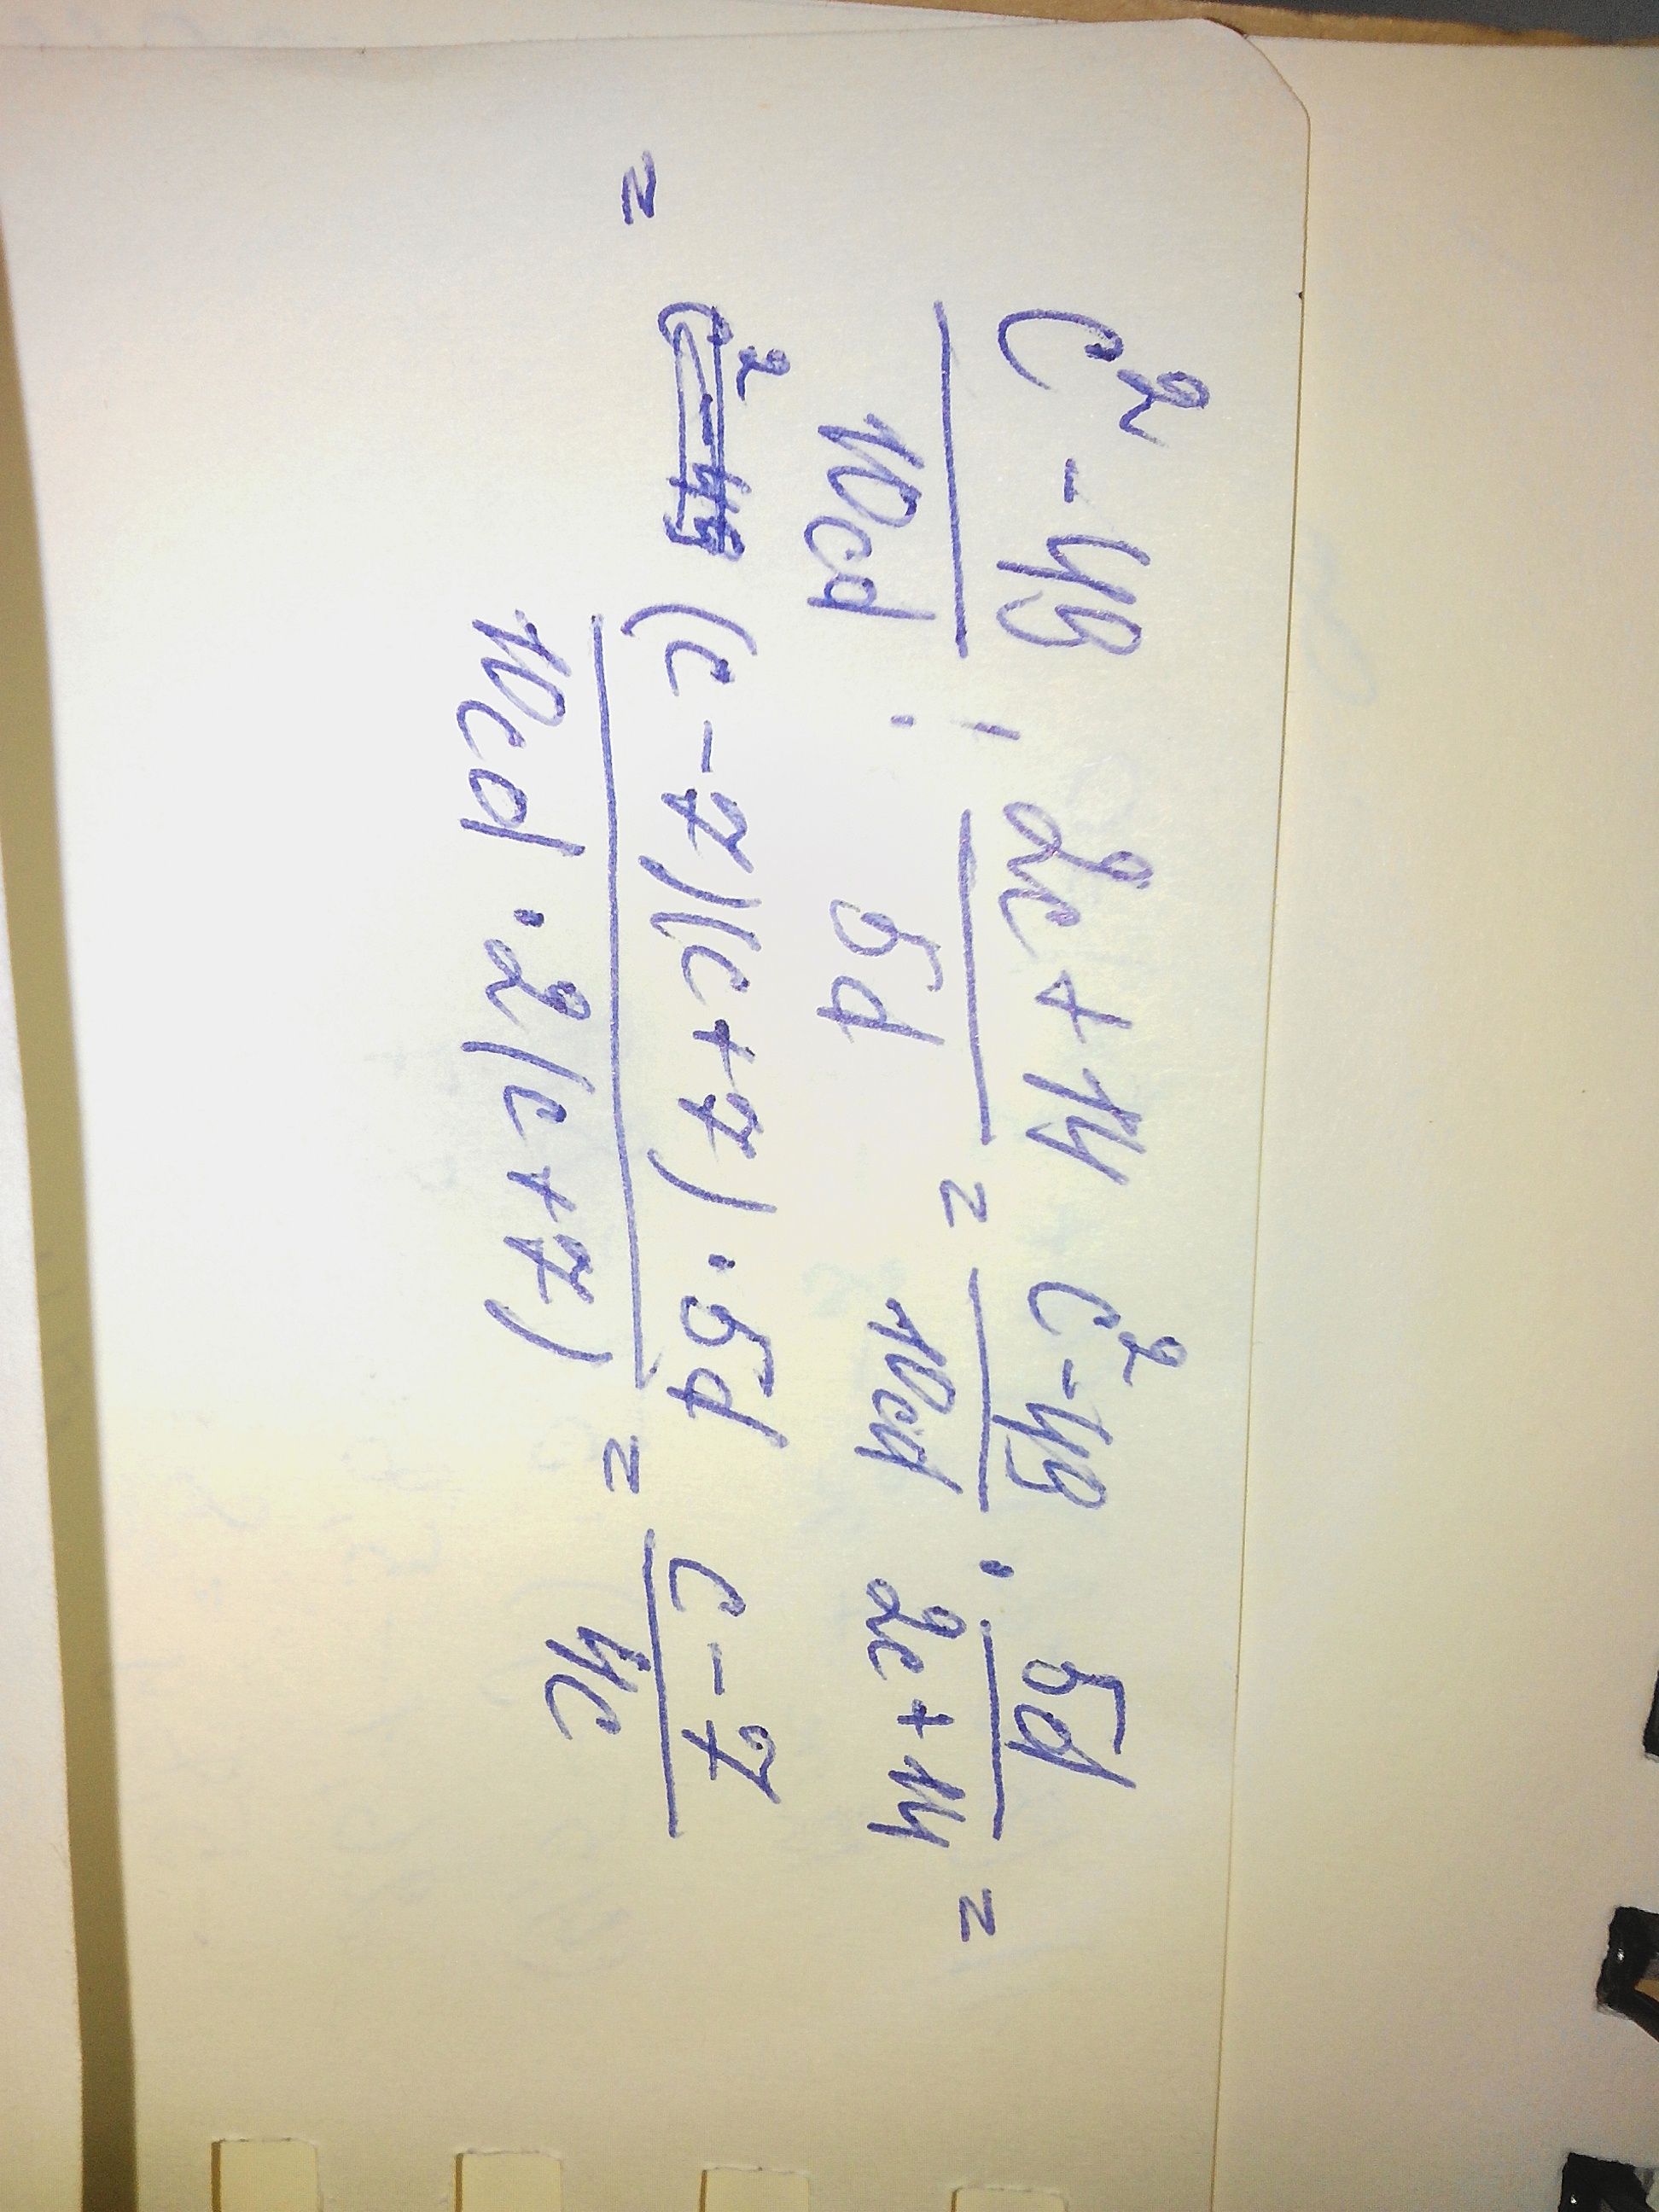 c² - 49 / 10cd : 2c + 14 / 5d = c² - 49 / 10cd · 5d / 2c + 14 =
= (c - 7)(c + 7) · 5d / 10cd · 2(c + 7) = c - 7 / 4c